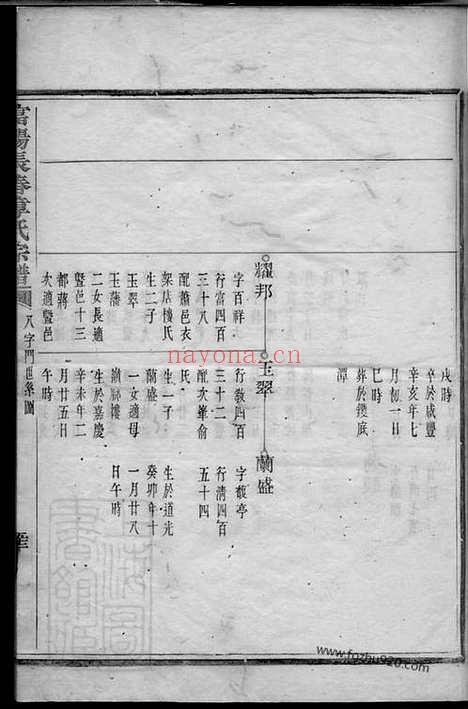 戌時
卒於咸豐
辛亥年七
月初一日
巳時
葬於後底
潭
耀邦
字百祥
行富四百
三十八
配蕭邑衣
架店樓氏
生二子
玉翠
玉藩
二女長適
暨邑十三
都蔣
次適暨邑
玉翠
行敬四百
三十二
配次峰俞
氏
生一子
蘭盛
一女適母
嶺腳樓
生於嘉慶
辛未年二
月廿五日
午時
蘭盛
字馥亭
行清四百
五十四
生於道光
癸卯年十
一月廿八
日午時
富陽長春章氏宗譜
八字門世系圖
nayona.cn
www.fozhu920.com